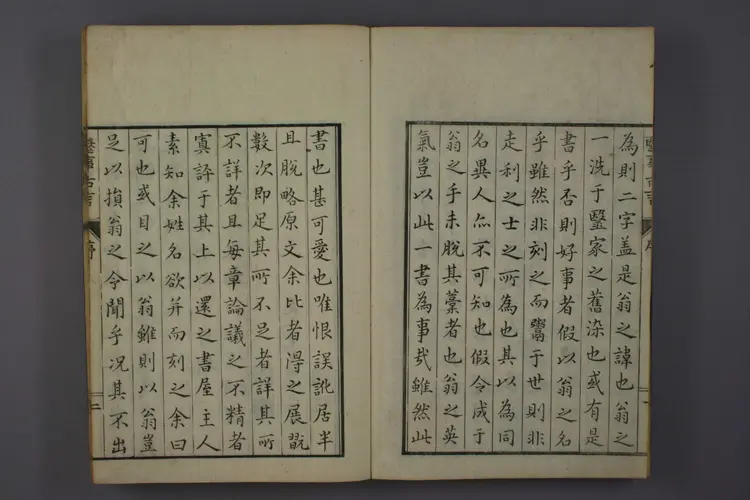 為則二字盖是翁之諱也翁之
一洗于毉家之舊染也或有是
書乎否則好事者假以翁之名
乎雖然非刻之而鬻于世則非
走利之士之所為也其以為同
名異人亦不可知也假令成于
翁之手未脫其藁者也翁之英
氣豈以此一書為事㢤雖然此
書也甚可愛也唯恨誤訛居半
且脫略原文余比者得之展翫
數次即足其所不足者詳其所
不詳者且每章論議之不精者
寘評于其上以還之書屋主人
素知余姓名欲并而刻之余曰
可也或目之以翁雖則以翁豈
足以損翁之令聞乎况其不出
毉事古言
序
二